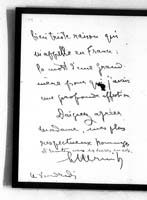 bien triste raison qui
m'appelle en France :
la mort d'une grand
mère pour qui j'avais
une profonde affection
Daignez agréer
Madame, mes plus
respectueux hommages